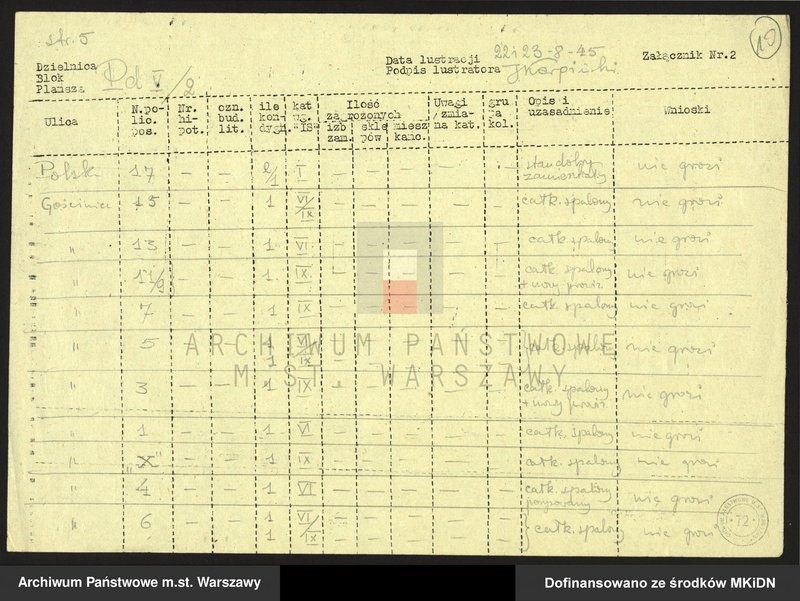 str. 5
10
Dzielnica
Blok
Plansza
Pd V/2
Data lustracji 22 i 23-8-45
Podpis lustratora JKarpiński
Załącznik Nr.2
Ulica N.po-lic. pos. Nr. hi-pot. ozn. bud. lit. ile kon-dygn. kat ug. "IS" Ilość zagrożonych izb zam. sklepów miesz kanc. Uwagi /zmia-na kat. gru pa kol. Opis i uzasadnienie Wnioski
Polsk 17 — — I — — — — — zamieszkały nie grozi
Gościnniec 15 — — 1 VI/IX — — — — całk. spalony nie grozi
" 13 — — 1 VI — — — — — całk. spalony nie grozi
" 11/9 — — 1 IX — — — — całk spalony nie grozi
" 7 — — 1 IX — — — — — całk spalony nie grozi
" 5 — — 1 VI — — — — spalony nie grozi
1 IX
" 3 — — 1 IX — — — — całk. spalony nie grozi
" 1 — — 1 VI — — — — — całk. spalony nie grozi
" "X" — — 1 IX — — — — — całk. spalony nie grozi
" 4 — — 1 VI — — — — — całk. spalony nie grozi
" 6 — — 1 VI/ — — — — — } całk. spalony nie grozi
1 IX
ARCHIWUM PAŃSTWOWE
M.ST. WARSZAWY
72
Archiwum Państwowe m.st. Warszawy
Dofinansowano ze środków MKiDN